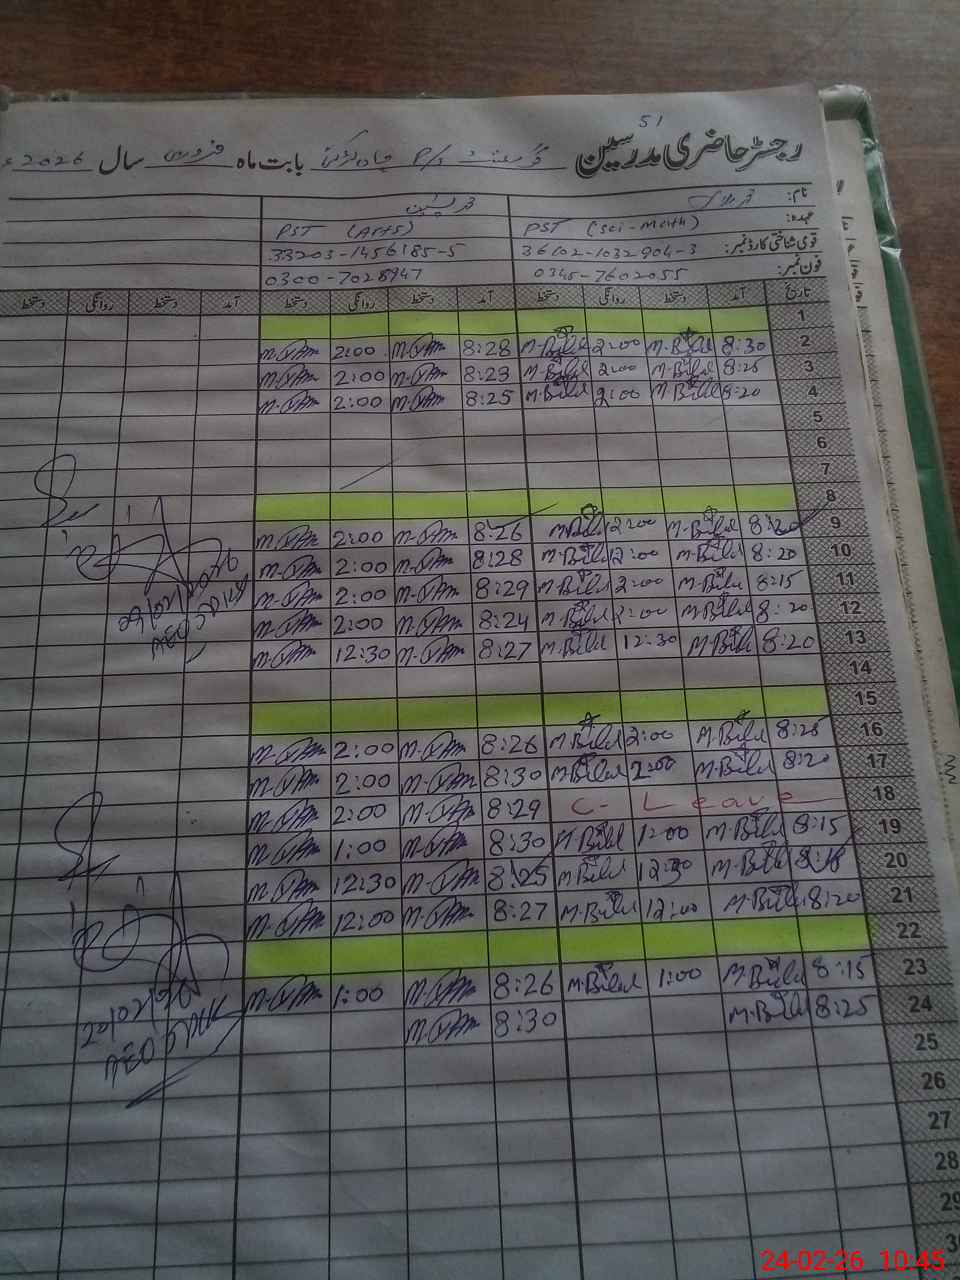 51
رجسٹر حاضری مدرسین گورنمنٹ P/S بابت ماہ فروری سال 2026ء
نام:
عہدہ: PST (Sci-Math) PST (Arts)
قومی شناختی کارڈ نمبر: 36102-1032904-3 33203-1456185-5
فون نمبر: 0345-7602055 0300-7028947
تاریخ آمد دستخط روانگی دستخط آمد دستخط روانگی دستخط آمد دستخط روانگی دستخط
1
2 8:30 M.Bilal 2:00 M.Bilal 8:28 2:00
3 8:25 M.Bilal 2:00 M.Bilal 8:23 2:00
4 8:20 M.Bilal 2:00 M.Bilal 8:25 2:00
5
6
7
8
9 8:20 M.Bilal 2:00 M.Bilal 8:26 2:00
10 8:20 M.Bilal 2:00 M.Bilal 8:28 2:00
11 8:15 M.Bilal 2:00 M.Bilal 8:29 2:00
12 8:20 M.Bilal 2:00 M.Bilal 8:24 2:00
13 8:20 M.Bilal 12:30 M.Bilal 8:27 12:30
14
15
16 8:25 M.Bilal 2:00 M.Bilal 8:26 2:00
17 8:20 M.Bilal 2:00 M.Bilal 8:30 2:00
18 C- Leave 8:29 2:00
19 8:15 M.Bilal 1:00 M.Bilal 8:30 1:00
20 8:18 M.Bilal 12:30 M.Bilal 8:25 12:30
21 8:20 M.Bilal 12:00 M.Bilal 8:27 12:00
22
23 8:15 M.Bilal 1:00 M.Bilal 8:26 1:00
24 8:25 M.Bilal 8:30
25
26
27
28
29
30
24-02-26 10:45